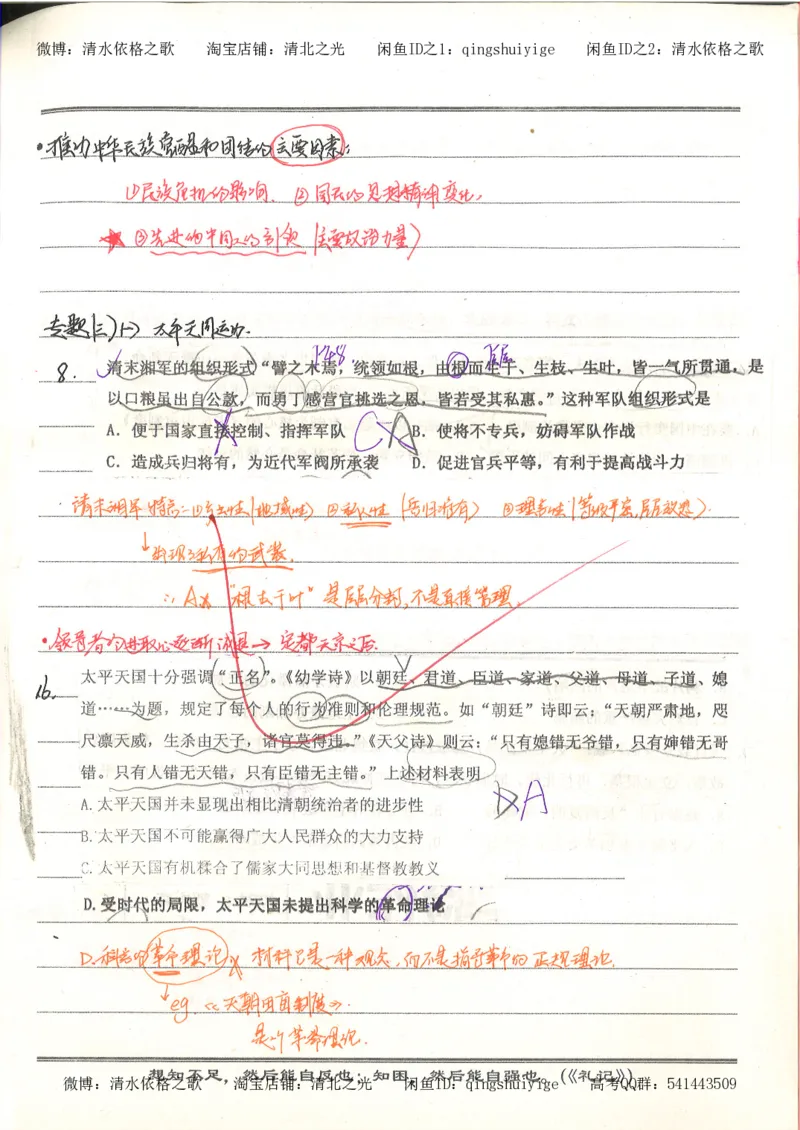 微博：清水依格之歌 淘宝店铺：清北之光 闲鱼ID之1：qingshuiyige 闲鱼ID之2：清水依格之歌
·推动中华民族觉醒和团结的主要因素：
①民族危机的影响. ②国民的思想精神变化,
★ ③先进的中国人的引领(主要政治力量)
专题(三)(一) 太平天国运动.
P48 层层
8. 清末湘军的组织形式“譬之木焉，统领如根，由根而生干、生枝、生叶，皆一气所贯通。是
以口粮虽出自公款，而勇丁感营官挑选之恩，皆若受其私惠。”这种军队组织形式是
A．便于国家直接控制、指挥军队 CA B．使将不专兵，妨碍军队作战
C．造成兵归将有，为近代军阀所承袭 D．促进官兵平等，有利于提高战斗力
清末湘军特点:①乡土性(地域性) ②私人性(兵归将有) ③理学性(等级平宽,层层效忠).
↓出现了私有的武装.
∴ A× “根去于叶”是层层分封,不是直接管理.
·领导者的进取心逐渐消退→定都天京之后.
16. 太平天国十分强调“正名”。《幼学诗》以朝廷、君道、臣道、家道、父道、母道、子道、媳
道……为题，规定了每个人的行为准则和伦理规范。如“朝廷”诗即云：“天朝严肃地，咫
尺凛天威，生杀由天子，诸官莫得违。”《天父诗》则云：“只有媳错无爷错，只有婶错无哥
错。只有人错无天错，只有臣错无主错。”上述材料表明
DA
A.太平天国并未显现出相比清朝统治者的进步性
B.太平天国不可能赢得广大人民群众的大力支持
C.太平天国有机糅合了儒家大同思想和基督教教义
D.受时代的局限，太平天国未提出科学的革命理论
D.科学的革命理论× 材料已是一种观念,而不是指导革命的正规理论.
↓eg《天朝田亩制度》.
是个革命理论.
想知不足，然后能自反也；知困，然后能自强也。(《礼记》)
微博：清水依格之歌 淘宝店铺：清北之光 闲鱼ID：qingshuiyige 高考QQ群：541443509